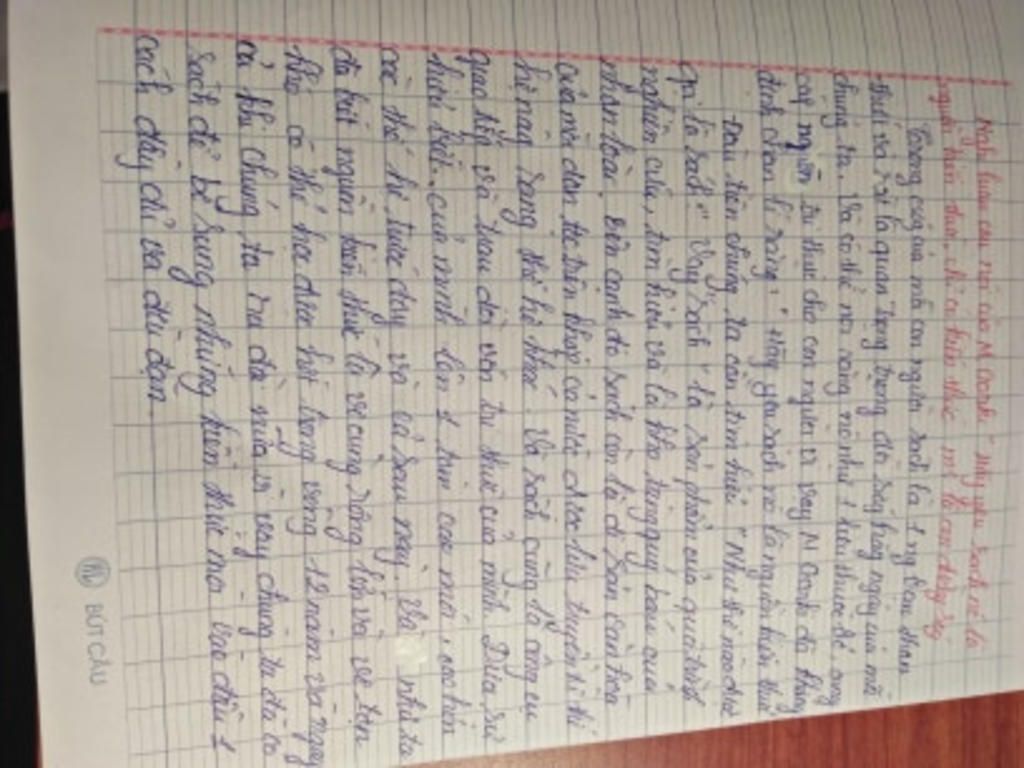 Nghị luận câu nói của M Gorki " Hãy yêu sách nó là
nguồn kiến thức, chỉ có kiến thức mới là con đường sống
Trong cuộc của mỗi con người sách là 1 ng bạn thân
thiết và rất là quan trọng trong đời sống hằng ngày của mỗi
chúng ta. Và có thể nói rằng nó như 1 kho thước để cung
cấp nguồn tri thức cho con người vì vậy M Gorki đã khẳng
định chân lí rằng: " Hãy yêu sách nó là nguồn kiến thức
Đầu tiên chúng ta cần tìm hiểu " Như thế nào được
gọi là sách" Vậy "sách" là sản phẩm của quá trình
nghiên cứu, tìm hiểu và là kho tàng quý báu của
nhân loại. Bên cạnh đó sách còn là di sản văn hóa
của mỗi dân tộc trên khắp cả nước được lưu truyền từ thế
hệ này sang thế hệ khác. Và sách cũng là công cụ
giúp và trau dồi vốn tri thức của mình. Dựa sự
hiểu biết của mình lên 1 tầm cao mới,
các thế hệ trước đây và cả sau này. Và như ta
đã biết nguồn kiến thức là vô cùng rộng lớn và vô tận
khó có thể học được hết trong vòng 12 năm và ngay
cả khi chúng ta ra đời nữa vì vậy chúng ta đã có
sách để bổ sung những kiến thức mà vào đầu 1
cách đầy đủ và đều đặn.
BÚT CÂU